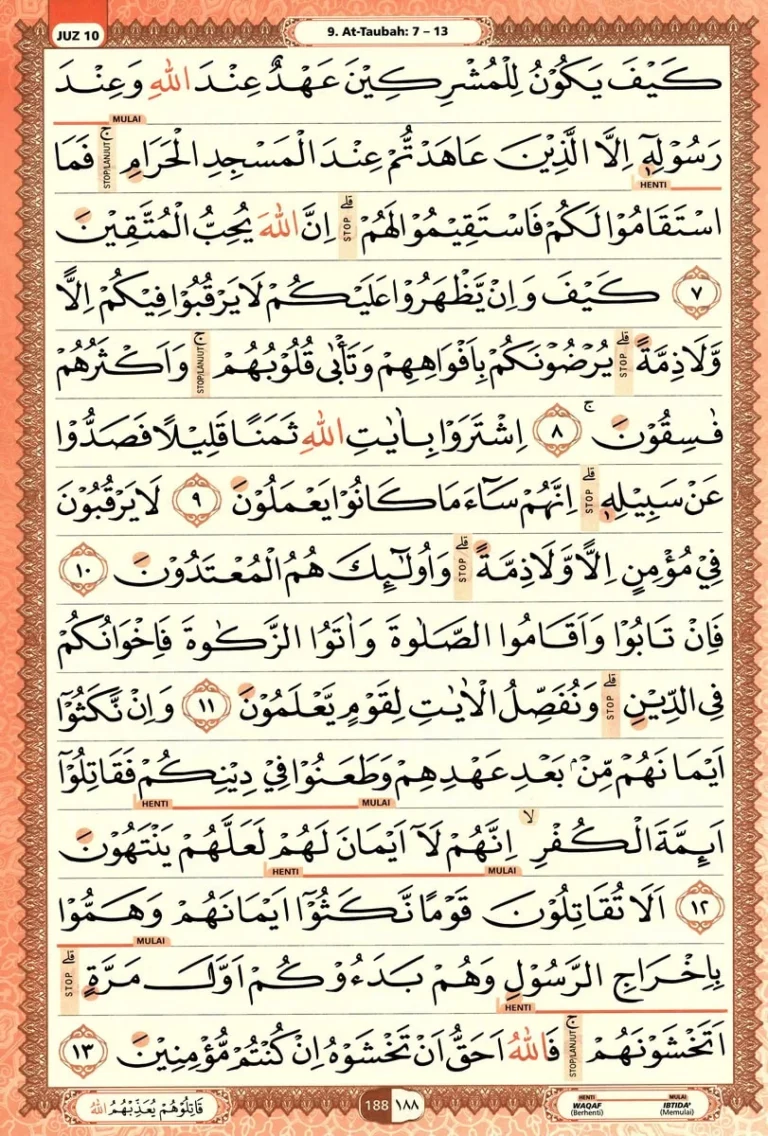 JUZ 10
9. At-Taubah: 7 – 13
كَيْفَ يَكُوْنُ لِلْمُشْرِكِيْنَ عَهْدٌ عِنْدَ اللّٰهِ وَعِنْدَ
MULAI
رَسُوْلِهٖٓ اِلَّا الَّذِيْنَ عَاهَدْتُّمْ عِنْدَ الْمَسْجِدِ الْحَرَامِ ۚ STOP/LANJUT فَمَا
HENTI
اسْتَقَامُوْا لَكُمْ فَاسْتَقِيْمُوْا لَهُمْ ۗ STOP اِنَّ اللّٰهَ يُحِبُّ الْمُتَّقِيْنَ
٧ كَيْفَ وَاِنْ يَّظْهَرُوْا عَلَيْكُمْ لَا يَرْقُبُوْا فِيْكُمْ اِلًّا
وَّلَا ذِمَّةً ۗ STOP يُرْضُوْنَكُمْ بِاَفْوَاهِهِمْ وَتَأْبٰى قُلُوْبُهُمْ ۚ STOP/LANJUT وَاَكْثَرُهُمْ
فٰسِقُوْنَ ۚ ٨ اِشْتَرَوْا بِاٰيٰتِ اللّٰهِ ثَمَنًا قَلِيْلًا فَصَدُّوْا
عَنْ سَبِيْلِهٖ ۗ STOP اِنَّهُمْ سَاۤءَ مَا كَانُوْا يَعْمَلُوْنَ ٩ لَا يَرْقُبُوْنَ
فِيْ مُؤْمِنٍ اِلًّا وَّلَا ذِمَّةً ۗ STOP وَاُولٰۤىِٕكَ هُمُ الْمُعْتَدُوْنَ ١٠
فَاِنْ تَابُوْا وَاَقَامُوا الصَّلٰوةَ وَاٰتَوُا الزَّكٰوةَ فَاِخْوَانُكُمْ
فِى الدِّيْنِ ۗ STOP وَنُفَصِّلُ الْاٰيٰتِ لِقَوْمٍ يَّعْلَمُوْنَ ١١ وَاِنْ نَّكَثُوْٓا
اَيْمَانَهُمْ مِّنْۢ بَعْدِ عَهْدِهِمْ وَطَعَنُوْا فِيْ دِيْنِكُمْ فَقَاتِلُوْٓا
MULAI HENTI
اَىِٕمَّةَ الْكُفْرِ ۙ اِنَّهُمْ لَآ اَيْمَانَ لَهُمْ لَعَلَّهُمْ يَنْتَهُوْنَ
MULAI HENTI
١٢ اَلَا تُقَاتِلُوْنَ قَوْمًا نَّكَثُوْٓا اَيْمَانَهُمْ وَهَمُّوْا
MULAI
بِاِخْرَاجِ الرَّسُوْلِ وَهُمْ بَدَءُوْكُمْ اَوَّلَ مَرَّةٍ ۗ STOP
HENTI
اَتَخْشَوْنَهُمْ ۚ STOP/LANJUT فَاللّٰهُ اَحَقُّ اَنْ تَخْشَوْهُ اِنْ كُنْتُمْ مُّؤْمِنِيْنَ ١٣
قَاتِلُوْهُمْ يُعَذِّبْهُمُ اللّٰهُ
188 ١٨٨
HENTI MULAI
WAQAF IBTIDA'
(Berhenti) (Memulai)